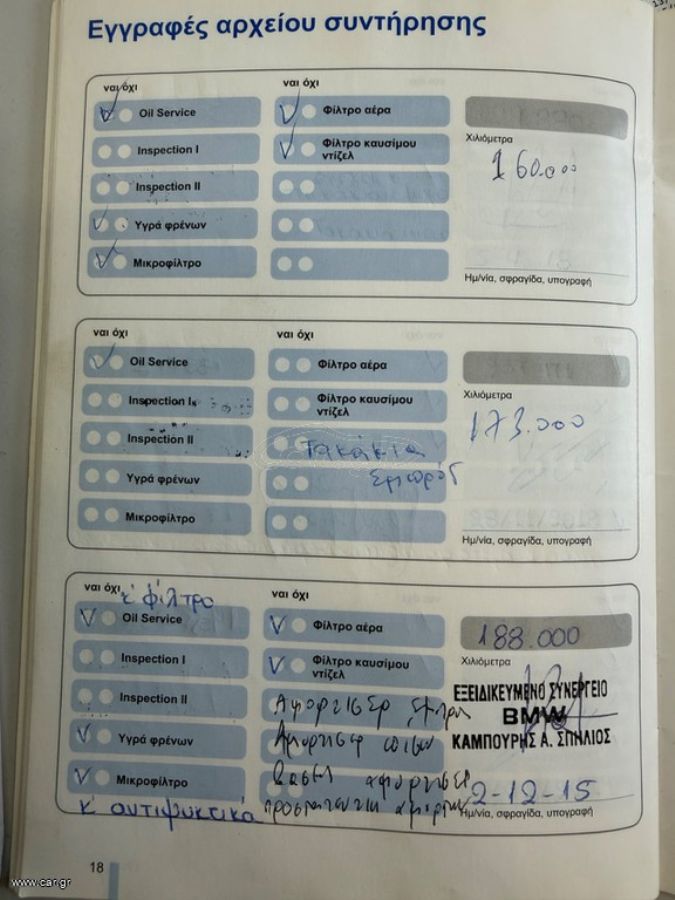 Εγγραφές αρχείου συντήρησης
ναι όχι
ναι όχι
Oil Service
Φίλτρο αέρα
Χιλιόμετρα
160.000
Inspection I
Φίλτρο καυσίμου
ντίζελ
Inspection II
Υγρά φρένων
Μικροφίλτρο
Ημ/νία, σφραγίδα, υπογραφή
ναι όχι
ναι όχι
Oil Service
Φίλτρο αέρα
Χιλιόμετρα
173.000
Inspection I
Φίλτρο καυσίμου
ντίζελ
Inspection II
Τακάκια
Εμπρός
Υγρά φρένων
Μικροφίλτρο
Ημ/νία, σφραγίδα, υπογραφή
ναι όχι
κ' φίλτρο
ναι όχι
Oil Service
Φίλτρο αέρα
188.000
Χιλιόμετρα
Inspection I
Φίλτρο καυσίμου
ντίζελ
ΕΞΕΙΔΙΚΕΥΜΕΝΟ ΣΥΝΕΡΓΕΙΟ
BMW
ΚΑΜΠΟΥΡΗΣ Α. ΣΠΗΛΙΟΣ
Inspection II
Αμορτισερ
Υγρά φρένων
Αμορτισερ
Μικροφίλτρο
Βασεις αμορτισερ
2-12-15
κ' αντιψυκτικά
Ημ/νία, σφραγίδα, υπογραφή
18
www.car.gr